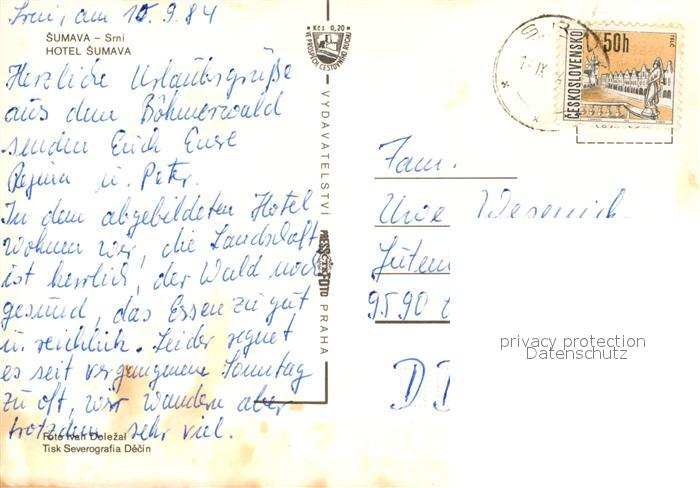 Srni, am 10.9.84
ŠUMAVA – Srní
HOTEL ŠUMAVA
Herzliche Urlaubsgrüße
aus dem Böhmerwald
senden Euch Eure
Regina u. Peter.
In dem abgebildeten Hotel
wohnen wir, die Landschaft
ist herrlich, der Wald noch
gesund, das Essen zu gut
u. reichlich. Leider regnet
es seit vergangenem Sonntag
zu oft, wir wandern aber
trotzdem sehr viel.
Foto Ivan Doležal
Tisk Severografia Děčín
Kčs 0,20
VE PROSPĚCH CESTOVNÍHO RUCHU
VYDAVATELSTVÍ
PRESSFOTO
PRAHA
ČESKOSLOVENSKO
50h
TELČ
Fam.
Uwe
9590
DD
privacy protection
Datenschutz